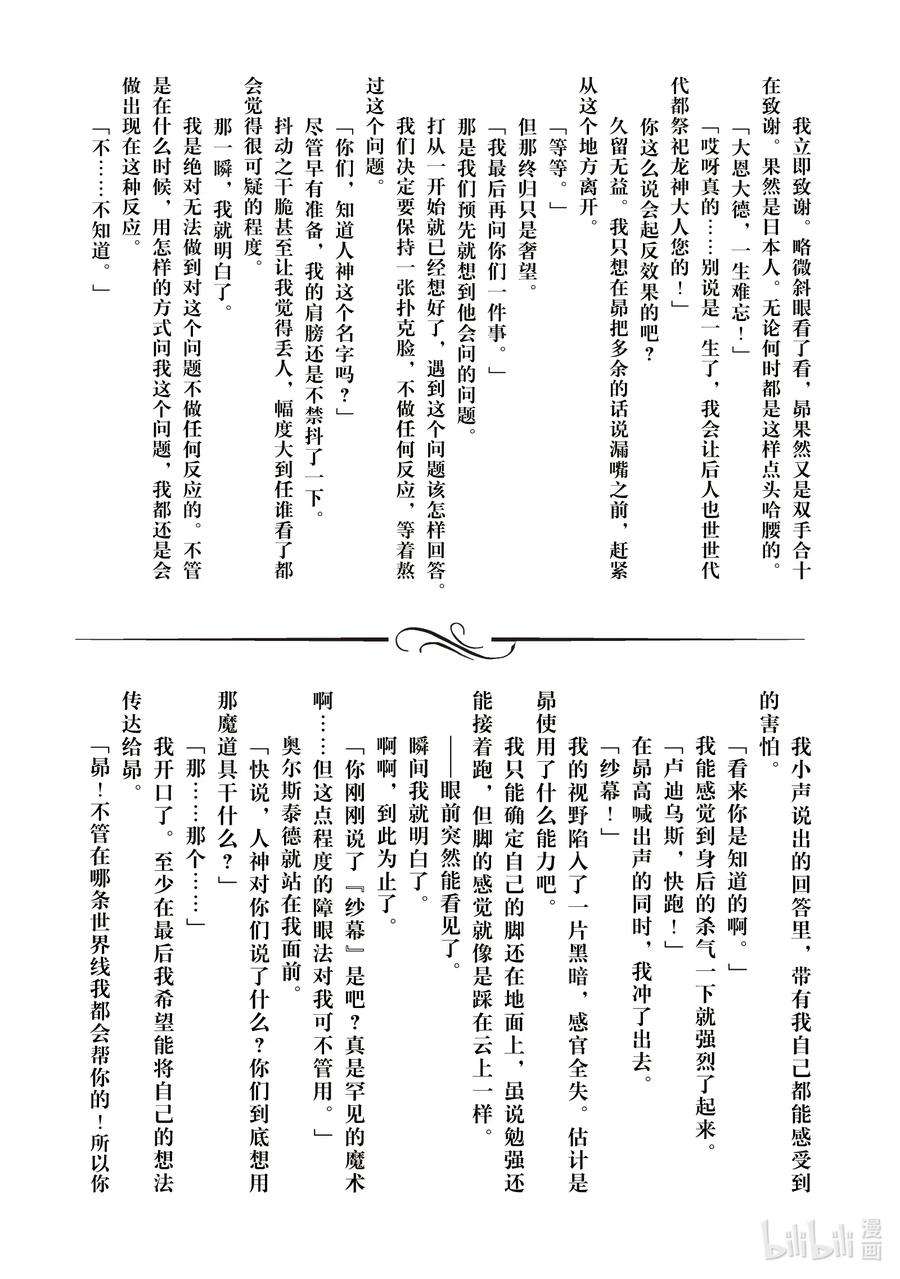 我立即致谢。略微斜眼看了看，昴果然又是双手合十
在致谢。果然是日本人。无论何时都是这样点头哈腰的。
「大恩大德，一生难忘！」
「哎呀真的……别说是一生了，我会让后人也世世代
代都祭祀龙神大人您的！」
你这么说会起反效果的吧？
久留无益。我只想在昴把多余的话说漏嘴之前，赶紧
从这个地方离开。
「等等。」
但那终归只是奢望。
「我最后再问你们一件事。」
那是我们预先就想到他会问的问题。
打从一开始就已经想好了，遇到这个问题该怎样回答。
我们决定要保持一张扑克脸，不做任何反应，等着熬
过这个问题。
「你们，知道人神这个名字吗？」
尽管早有准备，我的肩膀还是不禁抖了一下。
抖动之干脆甚至让我觉得丢人，幅度大到任谁看了都
会觉得很可疑的程度。
那一瞬，我就明白了。
我是绝对无法做到对这个问题不做任何反应的。不管
是在什么时候，用怎样的方式问我这个问题，我都还是会
做出现在这种反应。
「不……不知道。」
我小声说出的回答里，带有我自己都能感受到
的害怕。
「看来你是知道的啊。」
我能感觉到身后的杀气一下就强烈了起来。
「卢迪乌斯，快跑！」
在昴高喊出声的同时，我冲了出去。
「纱幕！」
我的视野陷入了一片黑暗，感官全失。估计是
昴使用了什么能力吧。
我只能确定自己的脚还在地面上，虽说勉强还
能接着跑，但脚的感觉就像是踩在云上一样。
——眼前突然能看见了。
瞬间我就明白了。
啊啊，到此为止了。
「你刚刚说了『纱幕』是吧？真是罕见的魔术
啊……但这点程度的障眼法对我可不管用。」
奥尔斯泰德就站在我面前。
「快说，人神对你们说了什么？你们到底想用
那魔道具干什么？」
「那……那个……」
我开口了。至少在最后我希望能将自己的想法
传达给昴。
「昴！不管在哪条世界线我都会帮你的！所以你
bilibili漫画